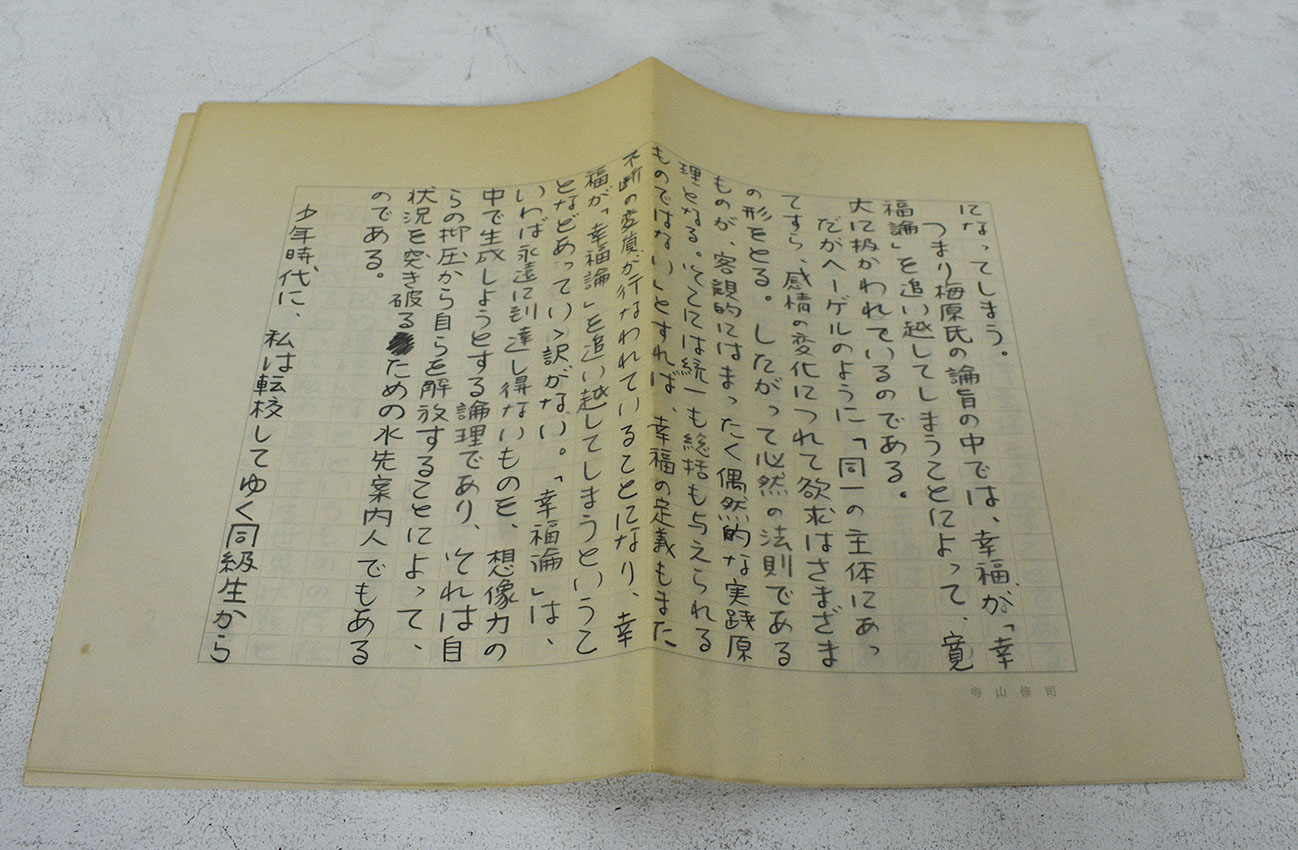 になってしまう。
つまり梅原氏の論旨の中では、幸福が「幸
福論」を追い越してしまうことによって、寛
大に扱かわれているのである。
だがヘーゲルのように「同一の主体にあっ
てすら、感情の変化につれて欲求はさまざま
の形をとる。したがって必然の法則である
ものが、客観的にはまったく偶然的な実践原
理となる。そこには統一も総括も与えられる
ものではない」とすれば、幸福の定義もまた
不断の変質が行なわれていることになり、幸
福が「幸福論」を追い越してしまうというこ
となどあっていゝ訳がない。「幸福論」は、
いわば永遠に到達し得ないものを、想像力の
中で生成しようとする論理であり、それは自
らの抑圧から自らを解放することによって、
状況を突き破るための水先案内人でもある
のである。
少年時代に、私は転校してゆく同級生から
寺山修司